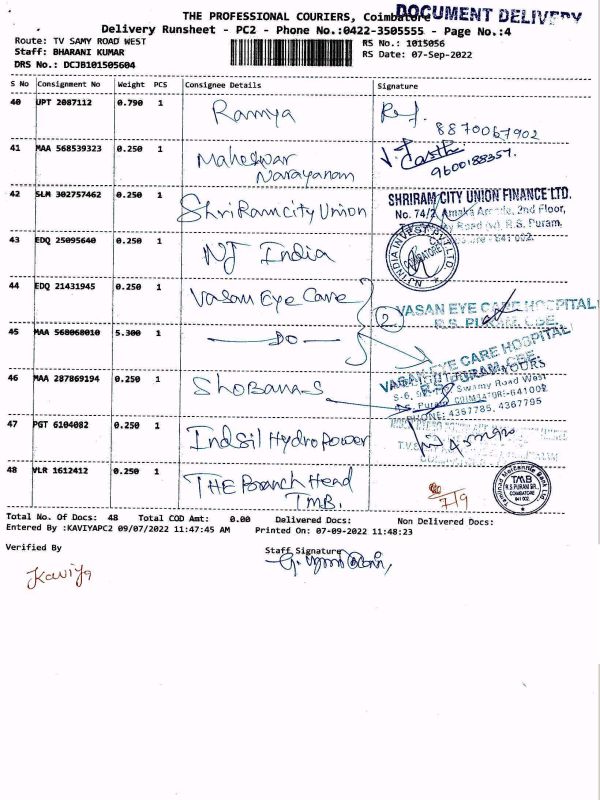 THE PROFESSIONAL COURIERS, Coimbatore
DOCUMENT DELIVERY
Delivery Runsheet - PC2 - Phone No.:0422-3505555 - Page No.:4
Route: TV SAMY ROAD WEST
RS No.: 1015056
Staff: BHARANI KUMAR
RS Date: 07-Sep-2022
DRS No.: DCJB101505604
S No Consignment No Weight PCS Consignee Details Signature
40 UPT 2087112 0.790 1 Ramya
8870067902
41 MAA 568539323 0.250 1 Maheswar Narayanam
9600188357.
42 SLM 302757462 0.250 1 Shri Ram city Union
SHRIRAM CITY UNION FINANCE LTD.
No. 74/2, Amaka Arcade, 2nd Floor,
R.S. Puram,
641 002.
43 EDQ 25095640 0.250 1 NJ India
NJ INDIA INVEST PVT LTD
COIMBATORE
44 EDQ 21431945 0.250 1 Vasan Eye Care
2 VASAN EYE CARE HOSPITAL
R.S. PURAM, CBE
45 MAA 568068010 5.300 1 — DO —
VASAN EYE CARE HOSPITAL
R.S. PURAM, CBE.
46 MAA 287869194 0.250 1 Shobana S
Swamy Road West
R.S. Puram COIMBATORE-641002
PHONE: 4357785, 4367795
47 PGT 6104082 0.250 1 Indsil Hydropower
48 VLR 1612412 0.250 1 THE Branch Head
TMB.
7/9
Tamilnad Mercantile Bank Ltd.
TMB
R.S PURAM BR.
COIMBATORE
641 002
Total No. Of Docs: 48 Total COD Amt: 0.00 Delivered Docs: Non Delivered Docs:
Entered By :KAVIYAPC2 09/07/2022 11:47:45 AM Printed On: 07-09-2022 11:48:23
Verified By
Staff Signature
Kaviya